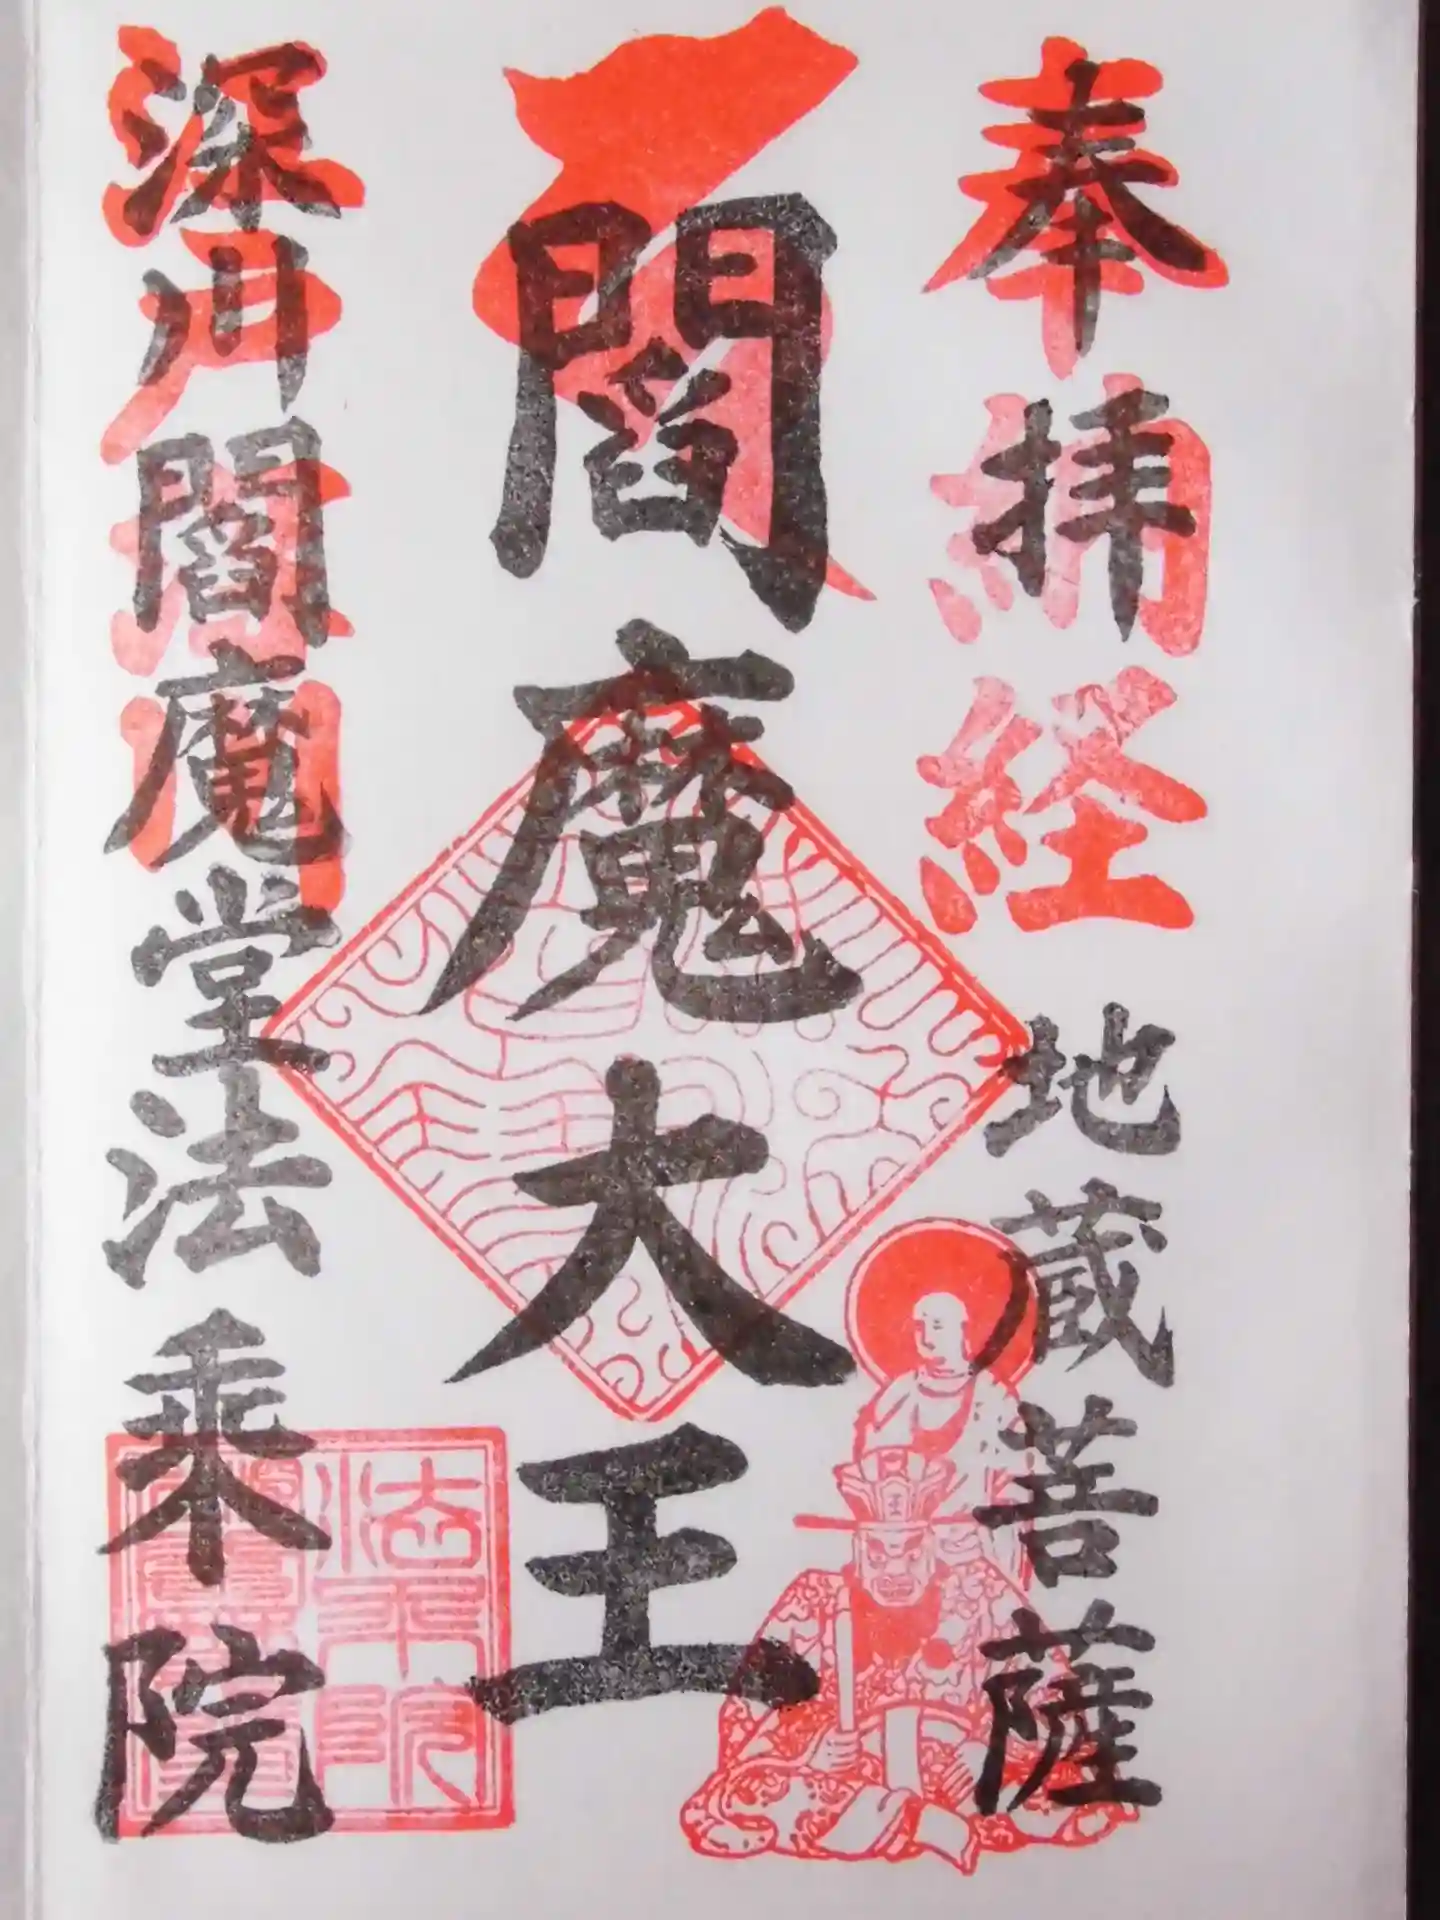 奉拝
地蔵菩薩
奉納経
閻魔大王
深川閻魔堂法乗院
法乗院